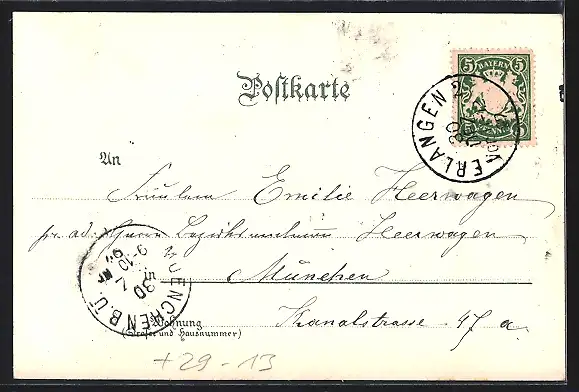 Postkarte
5 BAYERN 5
PFENNIG
ERLANGEN 2
An
Fräulein Emilie Heerwagen
pr. ad. Herrn Heerwagen
in München
MUENCHEN B.U.
30
9-10
Wohnung
(Straße und Hausnummer)
Kanalstrasse 47 a
+29-13